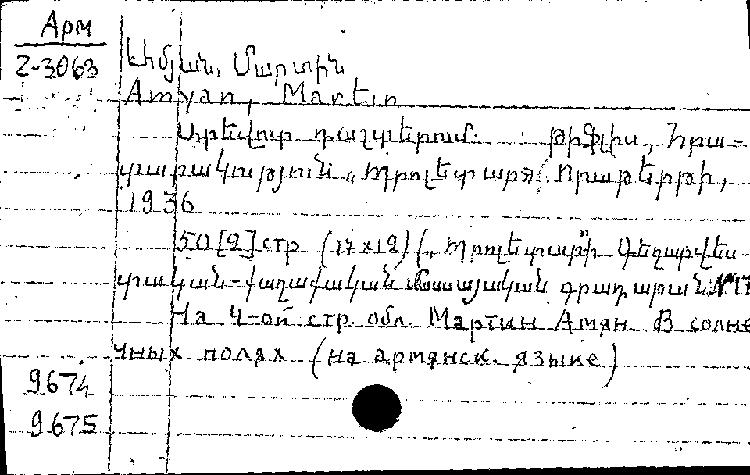 Арм
2-3063
Ամյան, Մարտին
Amyan, Martin
Արևոտ դաշտերում. Թիֆլիս, Հրա-
տարակություն „Պրոլետար" Օրաթերթի,
1936
50[2] стр (17x12) („Պրոլետարի Գեղարվես
տական-քաղաքական մասսայական գրադարան №17
На 4-ой стр обл Мартин Амян В солне
чных полях (на армянск. языке)
9674
9675